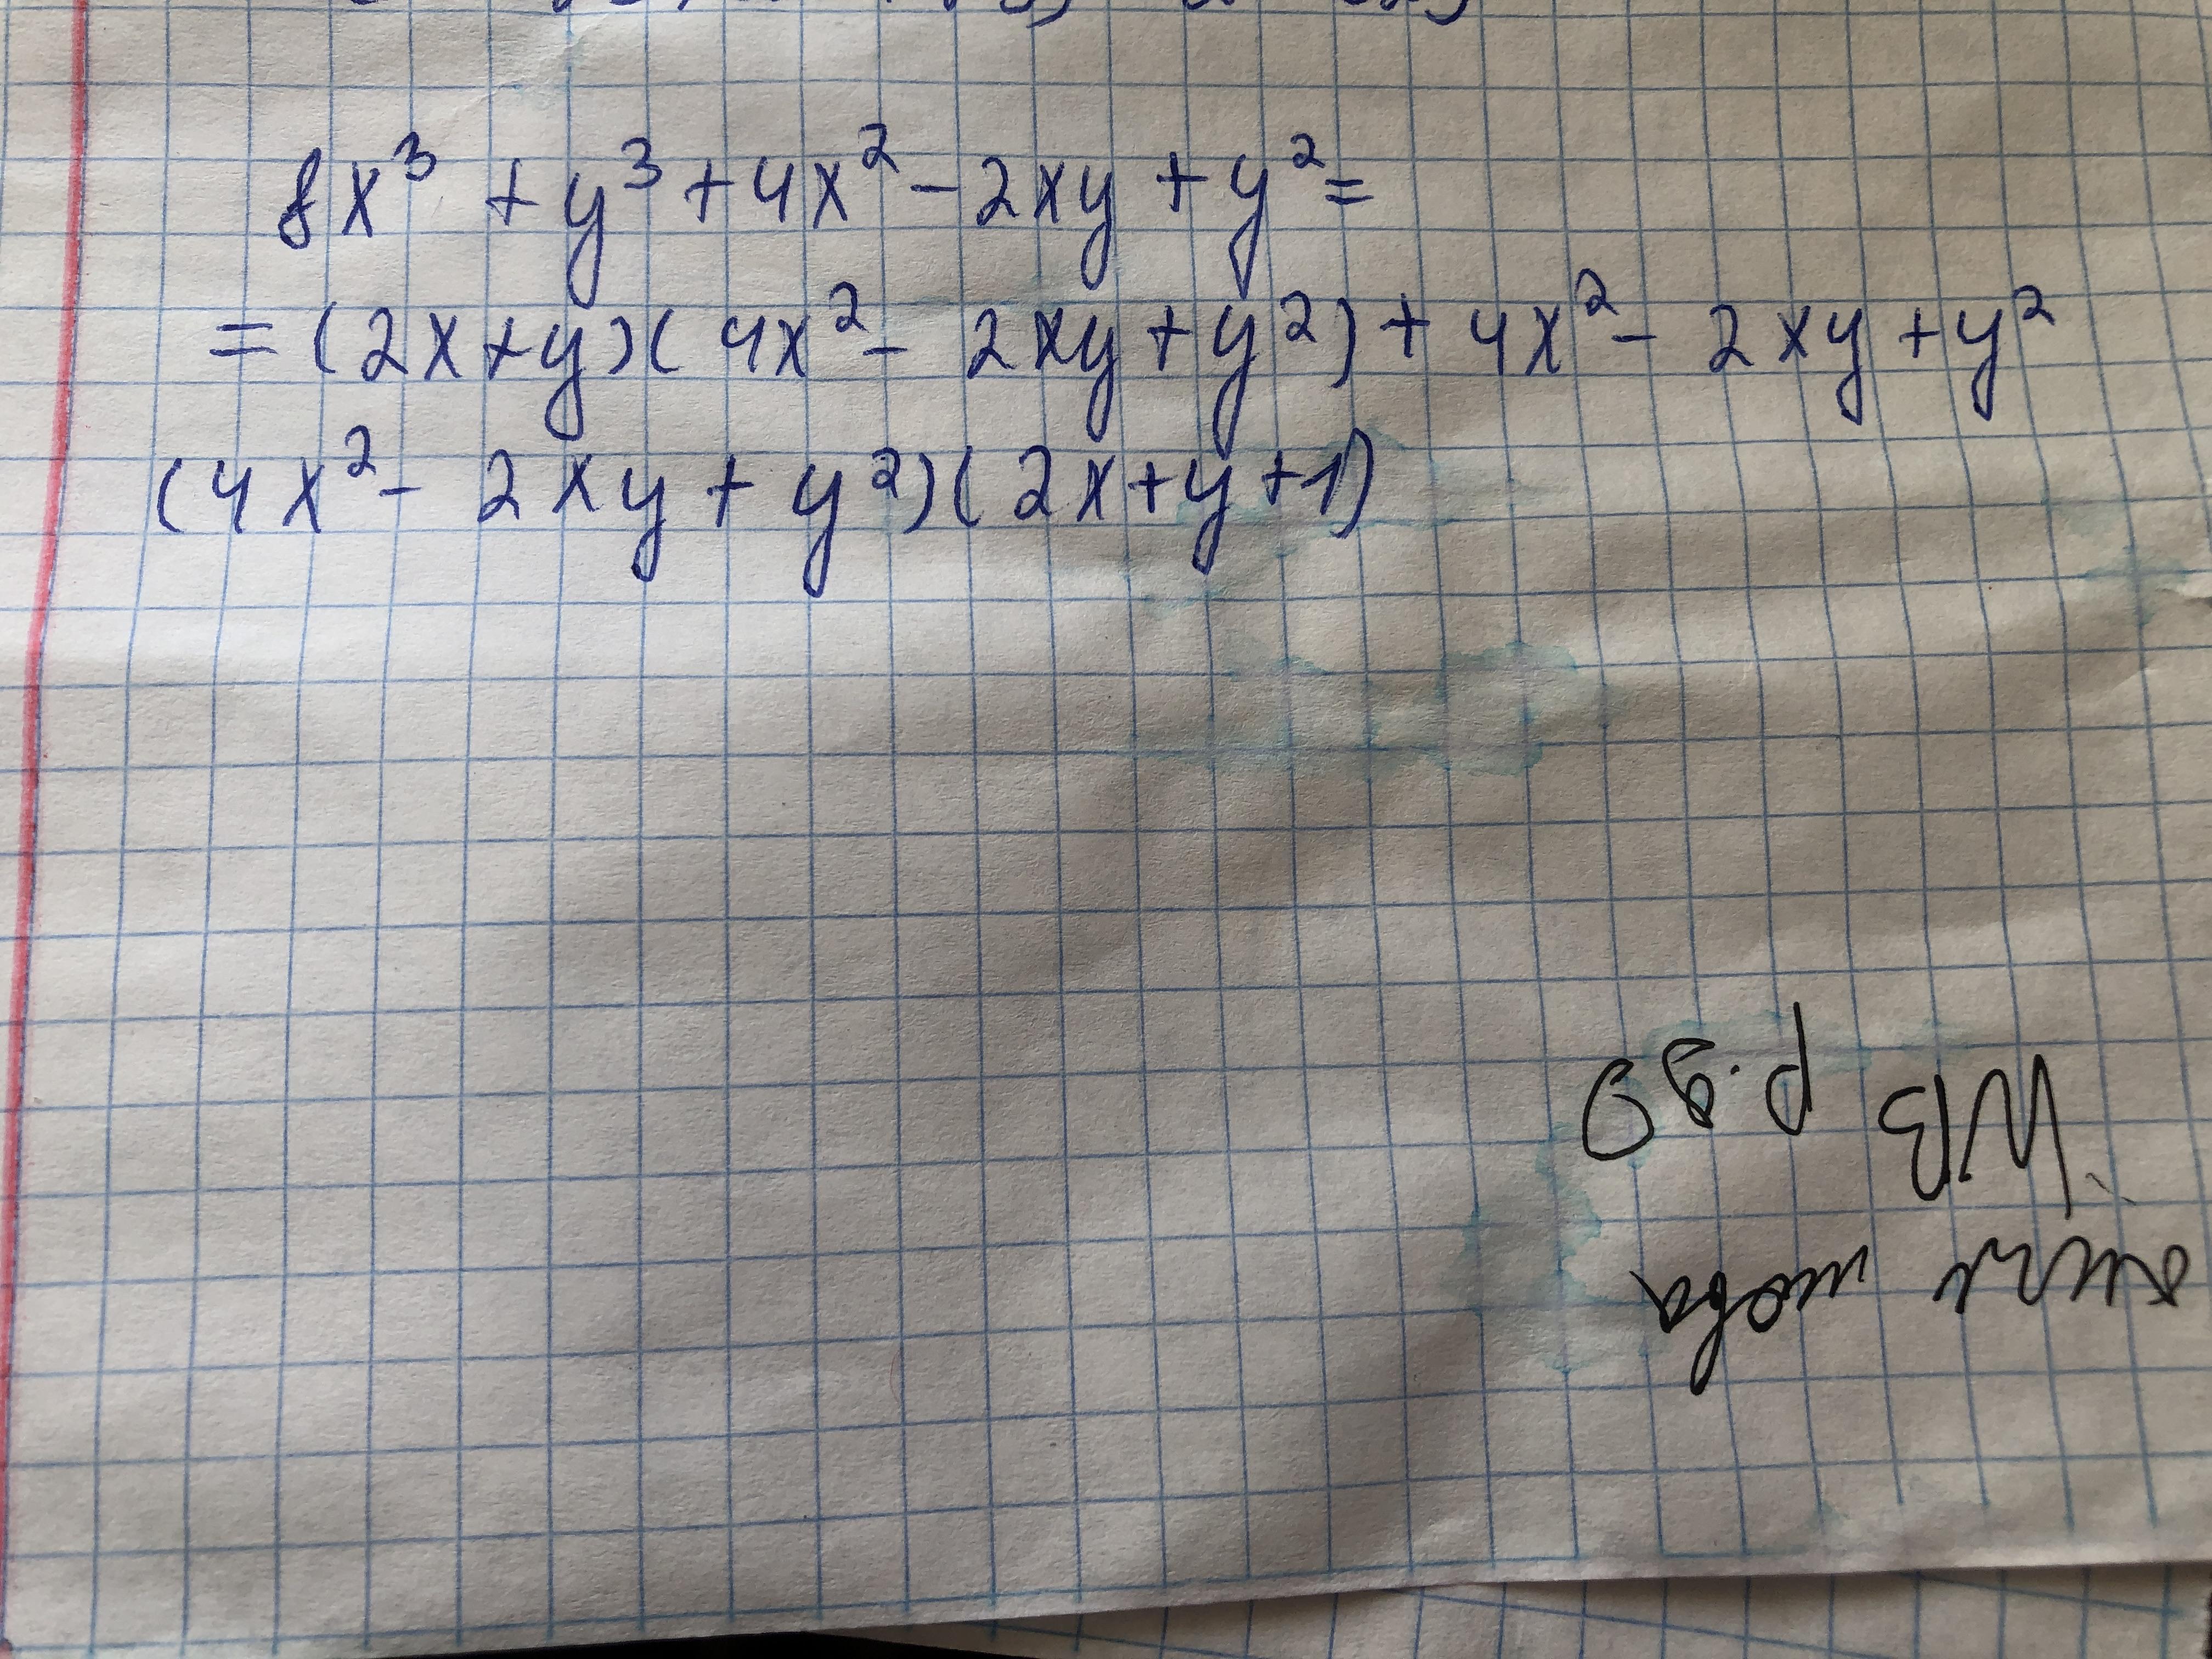 8x³ + y³ + 4x² - 2xy + y² =
= (2x + y)(4x² - 2xy + y²) + 4x² - 2xy + y²
(4x² - 2xy + y²)(2x + y + 1)
WB p.89